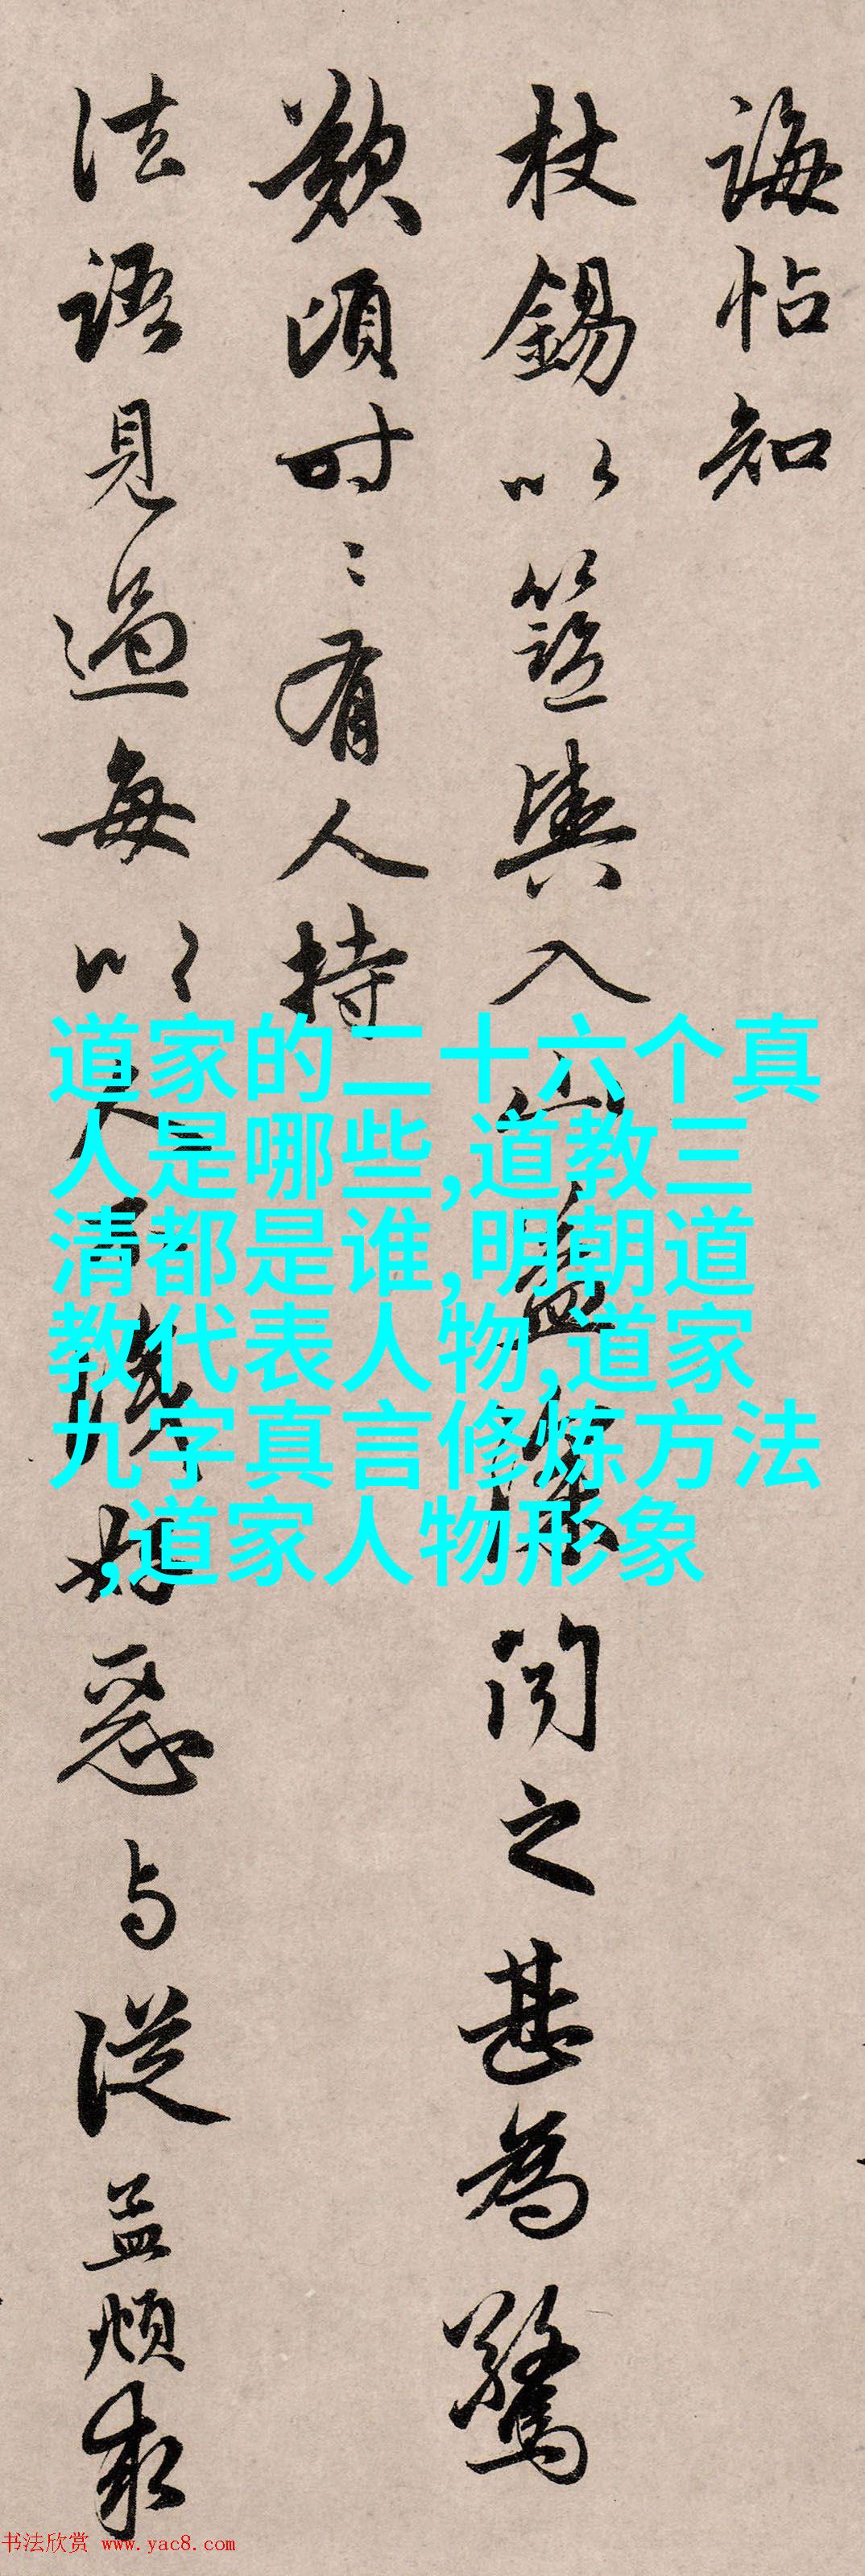 誨帖知
杖錫以籃輿入山蓋深闻之甚為驚
歎頃时〻有人持
法語見過每以人好惡与從益
道家的二十六个真
人是哪些,道教三
清都是谁,明朝道
教代表人物,道家
九字真言修炼方法
,道家人物形象
书法欣赏 www.yac8.com